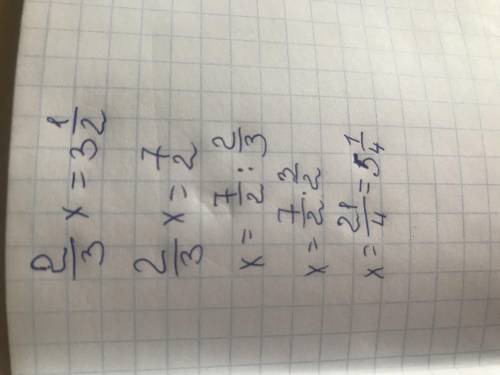 2/3 x = 3 1/2
2/3 x = 7/2
x = 7/2 : 2/3
x = 7/2 · 3/2
x = 21/4 = 5 1/4